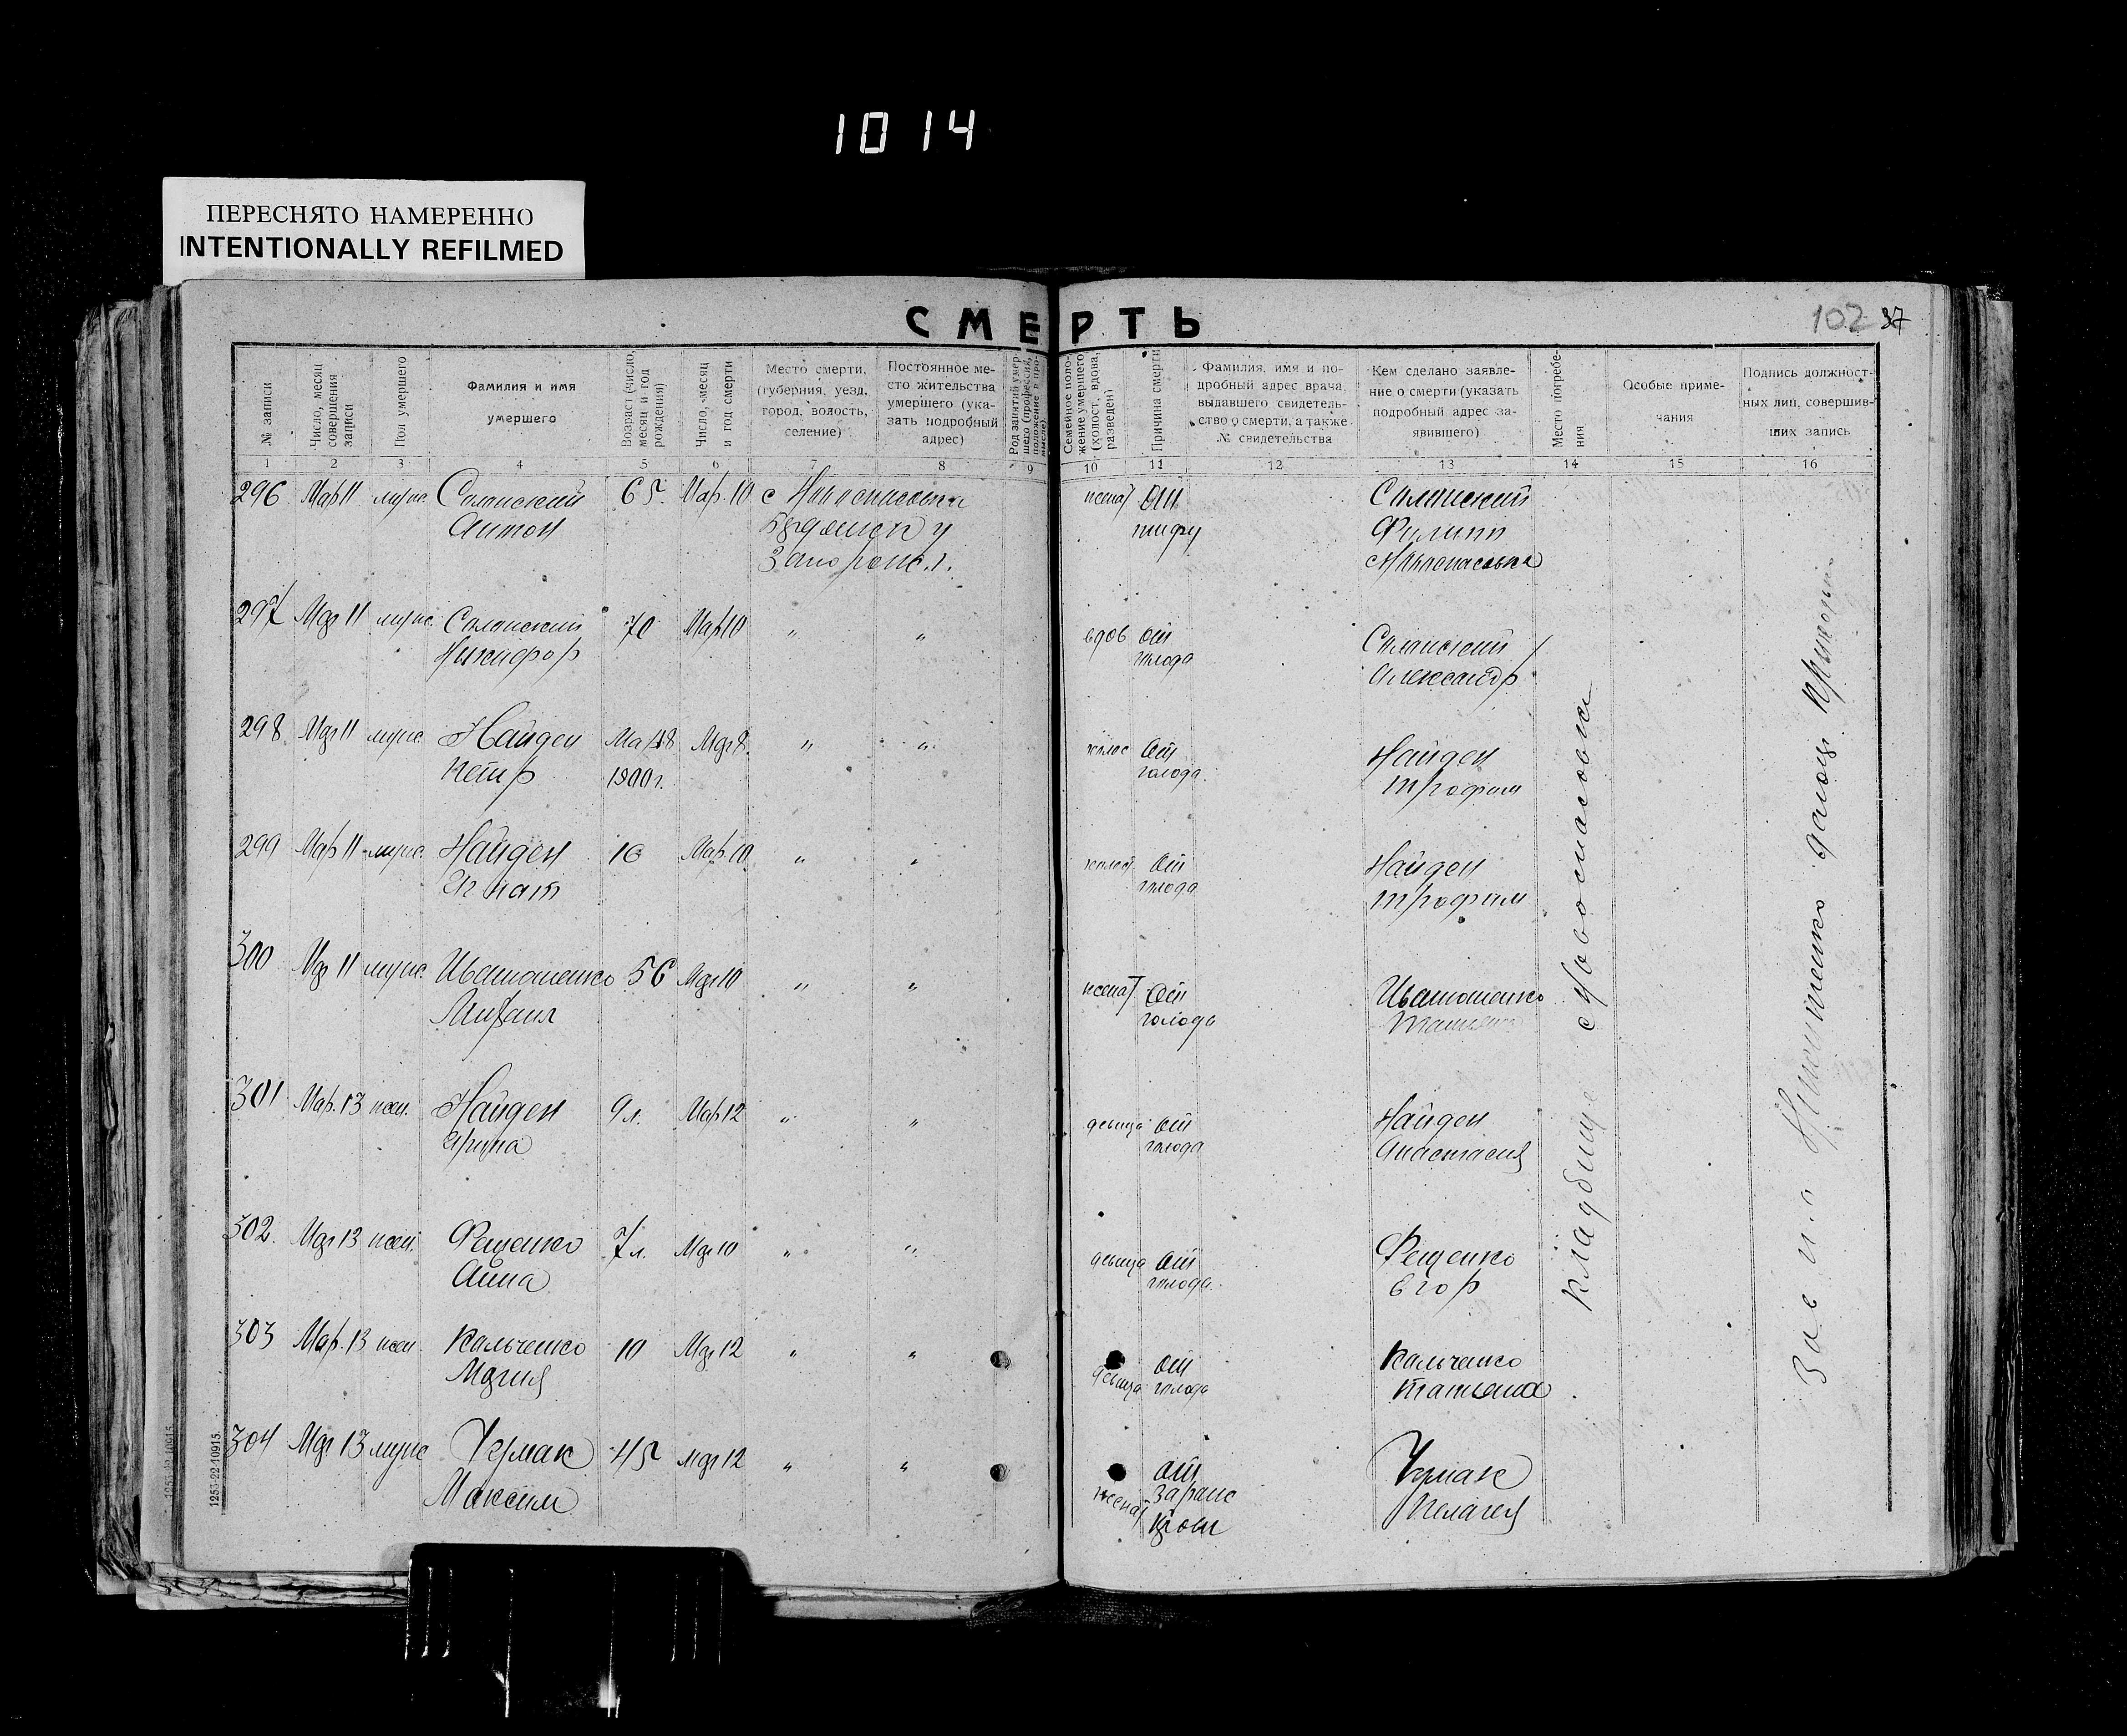 1014
ПЕРЕСНЯТО НАМЕРЕННО
INTENTIONALLY REFILMED
СМЕРТЬ
102 37
№ записи
Число, месяц совершения записи
Пол умершего
Фамилия и имя умершего
Возраст (число, месяц и год рождения)
Число, месяц и год смерти
Место смерти, (губерния, уезд, город, волость, селение)
Постоянное место жительства умершего (указать подробный адрес)
Род занятий умершего (профессия, положение в промысле)
Семейное положение умершего (холост, вдова, разведен)
Причина смерти
Фамилия, имя и подробный адрес врача, выдавшего свидетельство о смерти, а также № свидетельства
Кем сделано заявление о смерти (указать подробный адрес заявившего)
Место погребения
Особые примечания
Подпись должностных лиц, совершивших запись
1 2 3 4 5 6 7 8 9 10 11 12 13 14 15 16
296 Мар 11 муж. Антон 65 Мар. 10 с Новоспасовка женат От тифу Филипп
297 Мар 11 муж. Никифор 70 Мар 10 " " вдов От голода Александр
298 Мар 11 муж. Найден Петр 1900 г. Мар 8 " " холос От голода Найден Трофим
299 Мар 11 муж. Найден Игнат 16 Мар. 10 " " холост От голода Найден Трофим
300 Мар 11 муж. Михаил 56 Мар 10 " " женат От голода
301 Мар. 13 жен. Найден Ирина 9 л. Мар 12 " " девица От голода Найден Анастасия
302. Мар 13 жен. Фещенко Анна 7 л. Мар 10 " " девица От голода Фещенко Егор
303 Мар. 13 жен. Кальченко Мария 10 Мар 12 " " девица От голода Кальченко Татьяна
304 Мар 13 муж Чумак Максим 45 Мар 12 " " женат от зараж крови Чумак Пелагея
кладбище с Новоспасовки
1253-22-10915.